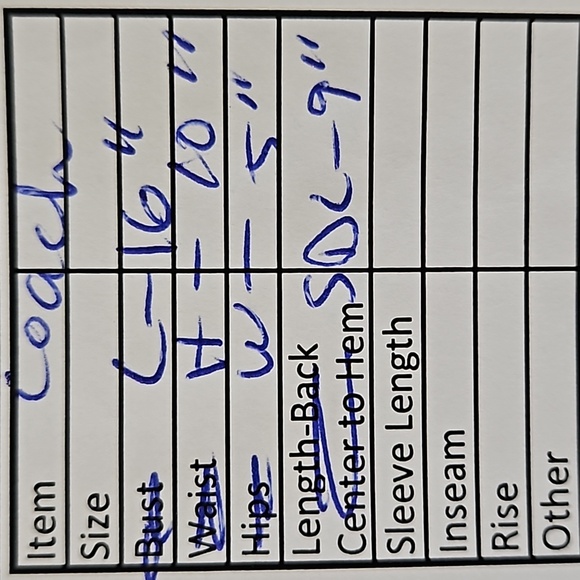 Item Coach
Size
Bust L-16"
Waist H-10"
Hips W-5"
Length-Back
Center to Hem SDL-9"
Sleeve Length
Inseam
Rise
Other